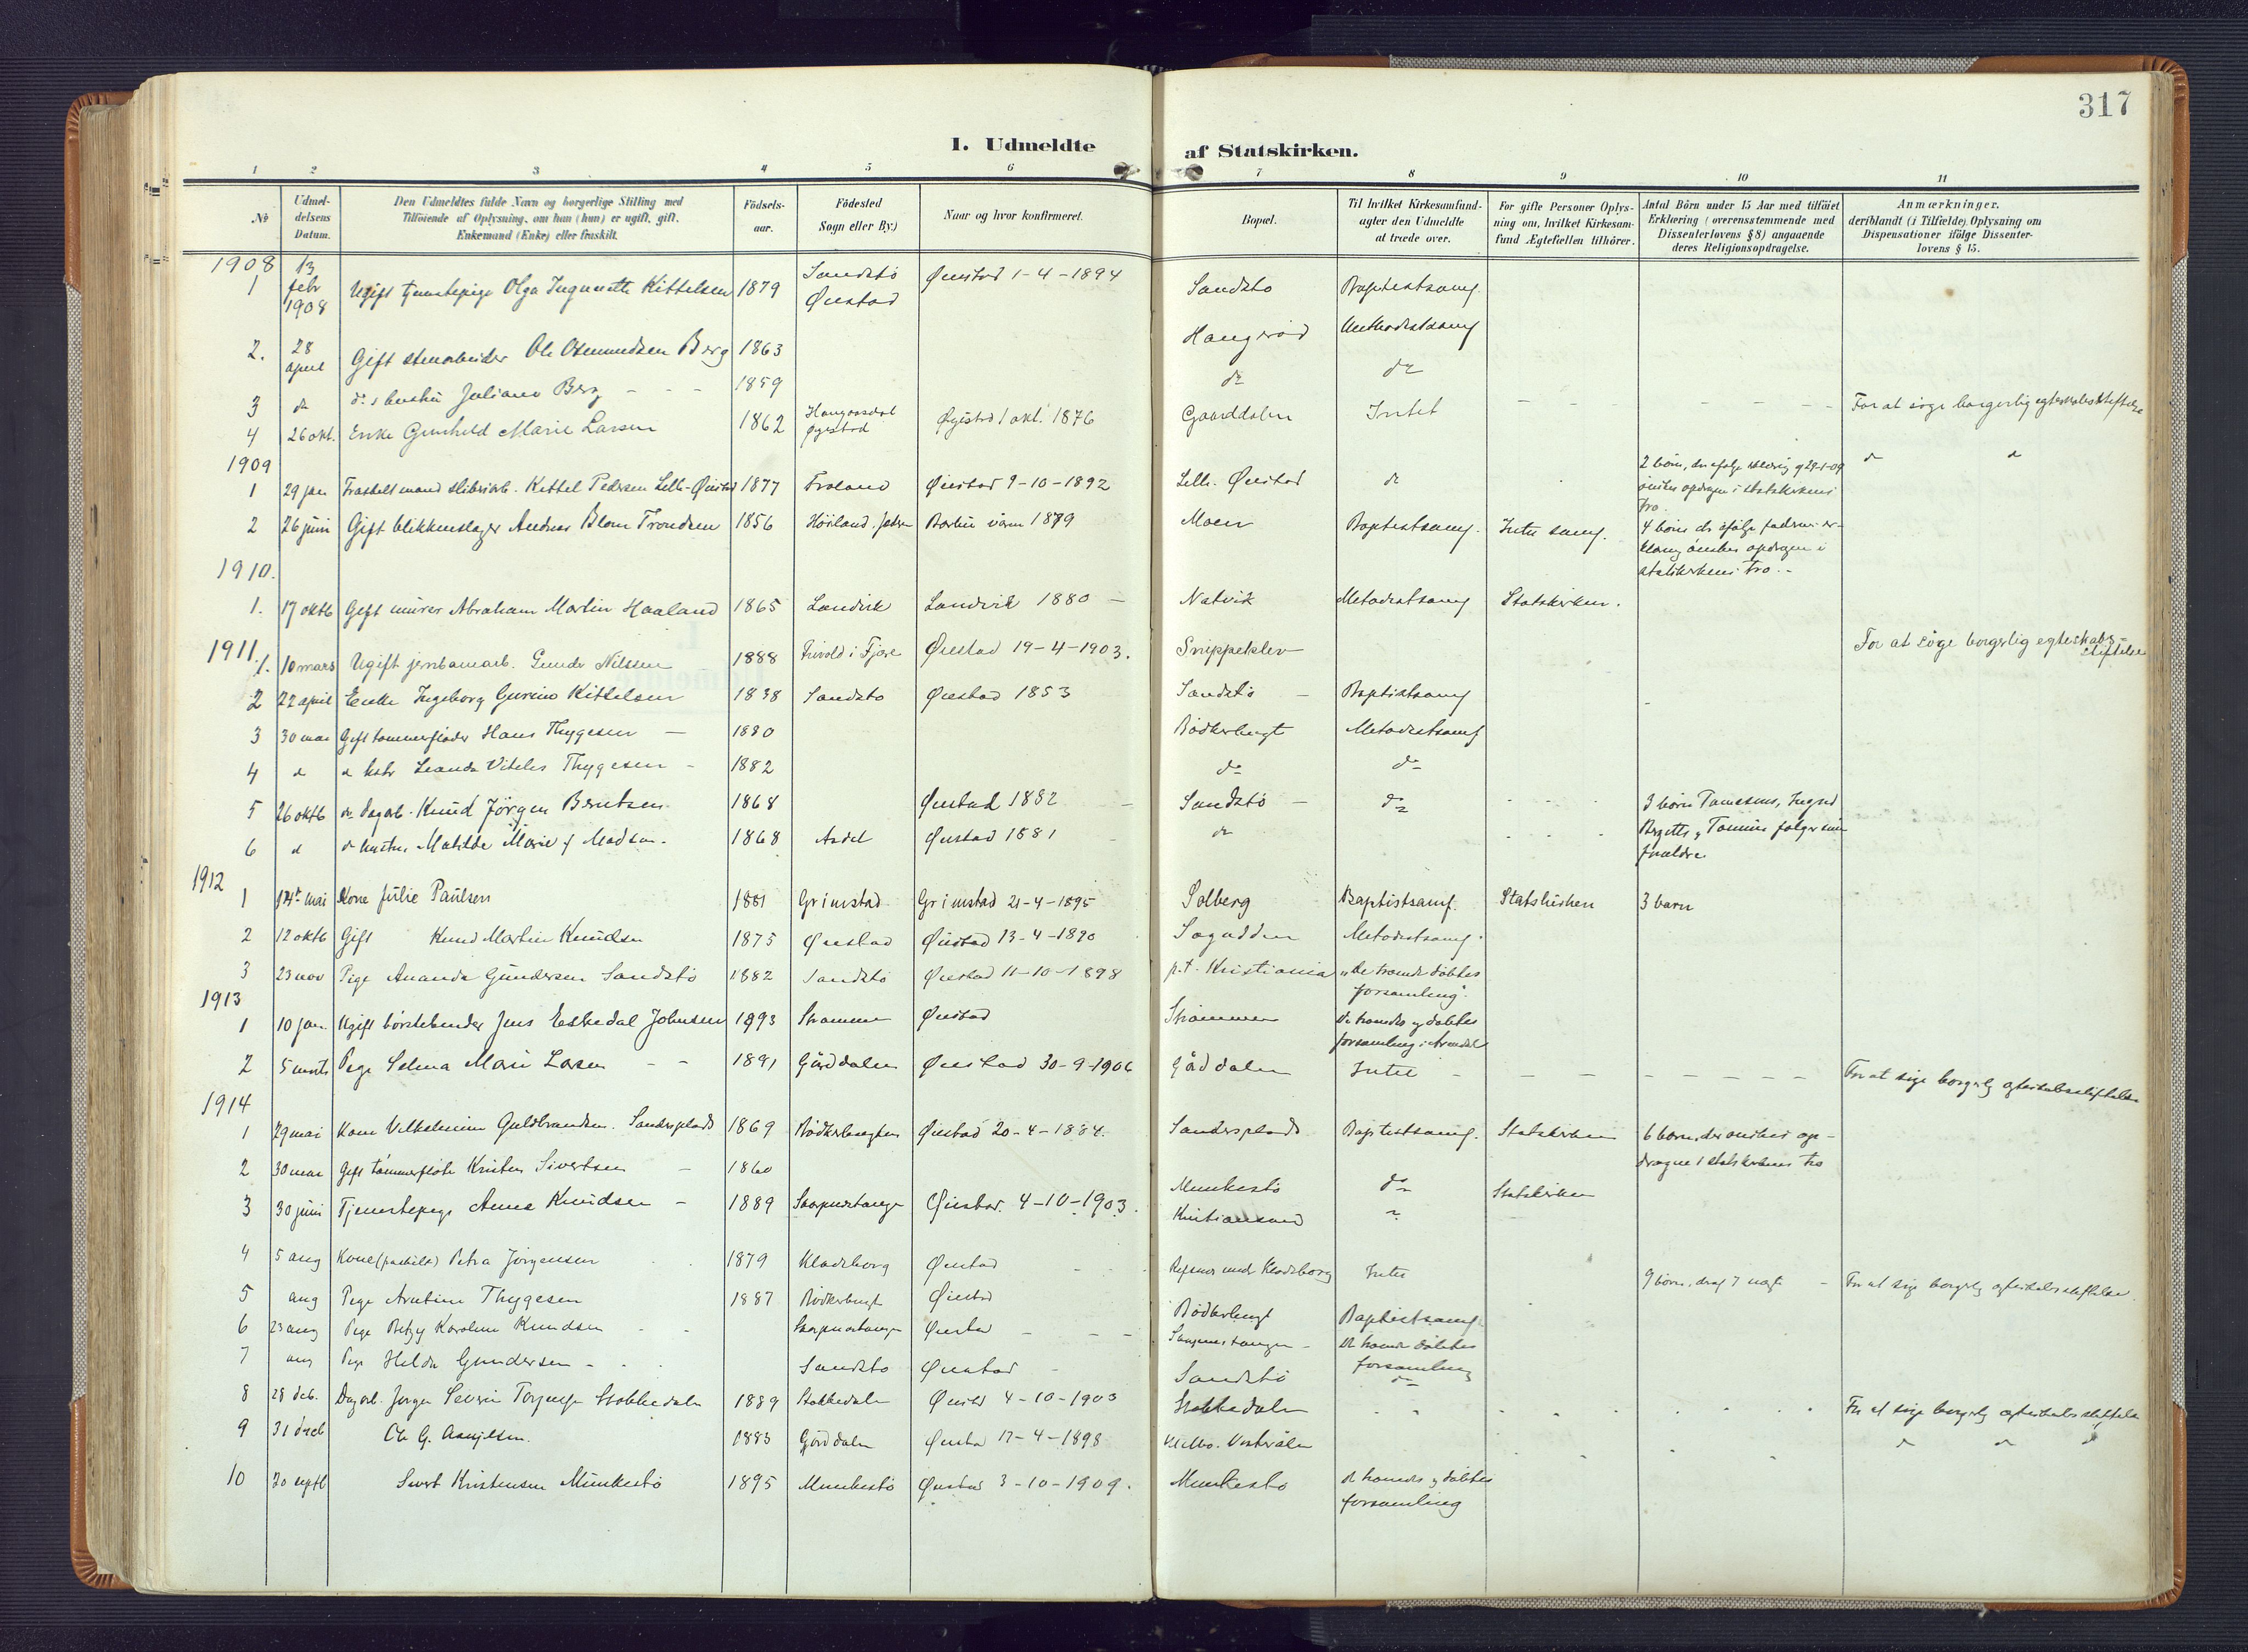 317
I. Udmeldte af Statskirken.
1 2 3 4 5 6 7 8 9 10 11
№
Udmel-
delsens
Datum.
Den Udmeldtes fulde Navn og borgerlige Stilling med
Tilföiende af Oplysning, om han (hun) er ugift, gift,
Enkemand (Enke) eller fraskilt.
Födsels-
aar.
Födested
Sogn eller By.)
Naar og hvor konfirmeret.
Bopæl.
Til hvilket Kirkesamfund-
agter den Udmeldte
at træde over.
For gifte Personer Oplys-
ning om, hvilket Kirkesam-
fund Ægtefællen tilhörer.
Antal Börn under 15 Aar med tilföiet
Erklæring (overensstemmende med
Dissenterlovens § 8) angaaende
deres Religionsopdragelse.
Anmærkninger,
deriblandt (i Tilfælde) Oplysning om
Dispensationer ifölge Dissenter-
lovens § 15.
1908
1 13 febr 1908 Ugift tjenestepige Olga Ingvarette Kittelsen 1879 Sandstö Öiestad Öiestad 1-4-1894 Sandstö Baptistsamf.
2. 28 april Gift stenarbeider Ole Osmundsen Berg 1863 Haugerød Methodistsamf
3 do ds hustru Juliane Berg - - - 1859 do do
4 26 okt. Enke Gunhild Marie Larsen 1862 Øyestad Øyestad 1 okt. 1876 Gaarddalen Intet - - - - - For at søge borgerlig egteskabsstiftelse
1909
1 29 jan Fraskilt mand sliberiarb. Kittel Pedersen Lille-Øiestad 1877 Froland Øiestad 9-10-1892 Lille Øiestad do
2 börn, der ifølge erklæring af 29-1-09
önskes opdragen i statskirkens
tro.
2 26 juni Gift blikkenslager Andreas Blom Trondsen 1856 Höiland, Jæderen 1879 Moen Baptistsamf. Intet samf.
4 börn der ifølge faderens er-
klæring önskes opdragen i
statskirkens tro.-
1910.
1. 17 oktb Gift murer Abraham Martin Haaland 1865 Landvik Landvik 1880 - Natvik Metodistsamf Statskirken.
1911
1. 10 mars Ugift jernbanearb. Gunder Nilssen 1888 Frivold i Fjære Øiestad 19-4-1903. Snippeklev For at söge borgerlig egteskabs-
stiftelse
2 22 april Enke Ingeborg Gurine Kittelsen 1838 Sandstö Øiestad 1853 Sandstö - Baptistsamf
3 30 mai Gift tømmerfløder Hans Thygesen - 1880 Bödkerbugt Metodistsamf
4 do do hstr Leanda Thygesen - 1882 do do
5 26 oktb do dagarb. Knud Jørgen Berntsen 1868 Øiestad 1882 - Sandstö - do
3 börn
6 do do hustru Matilde Marie f. Madsen. 1868 Øiestad 1881 - do
Bergitte, følger sine
forældre
1912
1 14de mai Kone Julie Paulsen 1881 Grimstad Grimstad 21-4-1895 Solberg Baptistsamf. Statskirken 3 barn
2 12 oktb Gift Knud Martin Knudsen 1875 Øiestad Øiestad 13-4-1890 Metodistsamf.
3 23 nov Pige Amanda Gundersen Sandstö 1882 Sandstö Øiestad 11-10-1898 p.t. Kristiania "de troende döbtes
forsamling".
1913
1 10 jan. Ugift börstebinder Jens Eskedal Johnsen 1893 Strømmen Øiestad Strömmen De troendes og döbtes
forsamling i Arendal
2 5 marts Pige Selma Marie Larsen - - 1891 Gårddalen Øiestad 30-9-1906 Gårddalen Intet - - - - - For at søge borgerlig egteskabsstiftelse
1914
1 29 mai Kone Vilhelmine Guldbrandsen. Sandersplads 1869 Bödkerbugten Øiestad 20-4-1884. Sandersplads Baptistsamf. Statskirken 6 börn, der önskes op-
dragne i statskirkens tro
2 30 mai Gift tömmerflöder Kristen Sivertsen - 1860 Munkestö do Statskirken
3 30 juni Tjenestepige Anna Knudsen - 1889 Øiestad. 4-10-1903. Kristiansand
4 5 aug Kone (fraskilt) Petra Jørgensen 1879 Kladeborg Øiestad Kladeborg Intet 9 börn, For at søge borgerlig egteskabsstiftelse.
5 aug Pige Thygesen 1887 Bödkerbugt Øiestad Bödkerbugt Baptistsamf
6 23 aug Pige Betzy Karoline Knudsen Øiestad - - - De troende döbtes
forsamling
7 aug Pige Hilda Gundersen - Sandstö Øiestad Sandstö do
8 28 deb. Dagarb. Jørgen Severin Torjusen Stokkedalen 1889 Stokkedalen Øiestad 4-10-1903 Stokkedalen For at søge borgerlig egteskabsstiftelse
9 31 deb 1883 Gårddalen Øiestad 17-4-1898
10 20 septb Sivert Kristensen Munkestö 1895 Munkestö Øiestad 3-10-1909. Munkestö de troendes og döbtes
forsamling